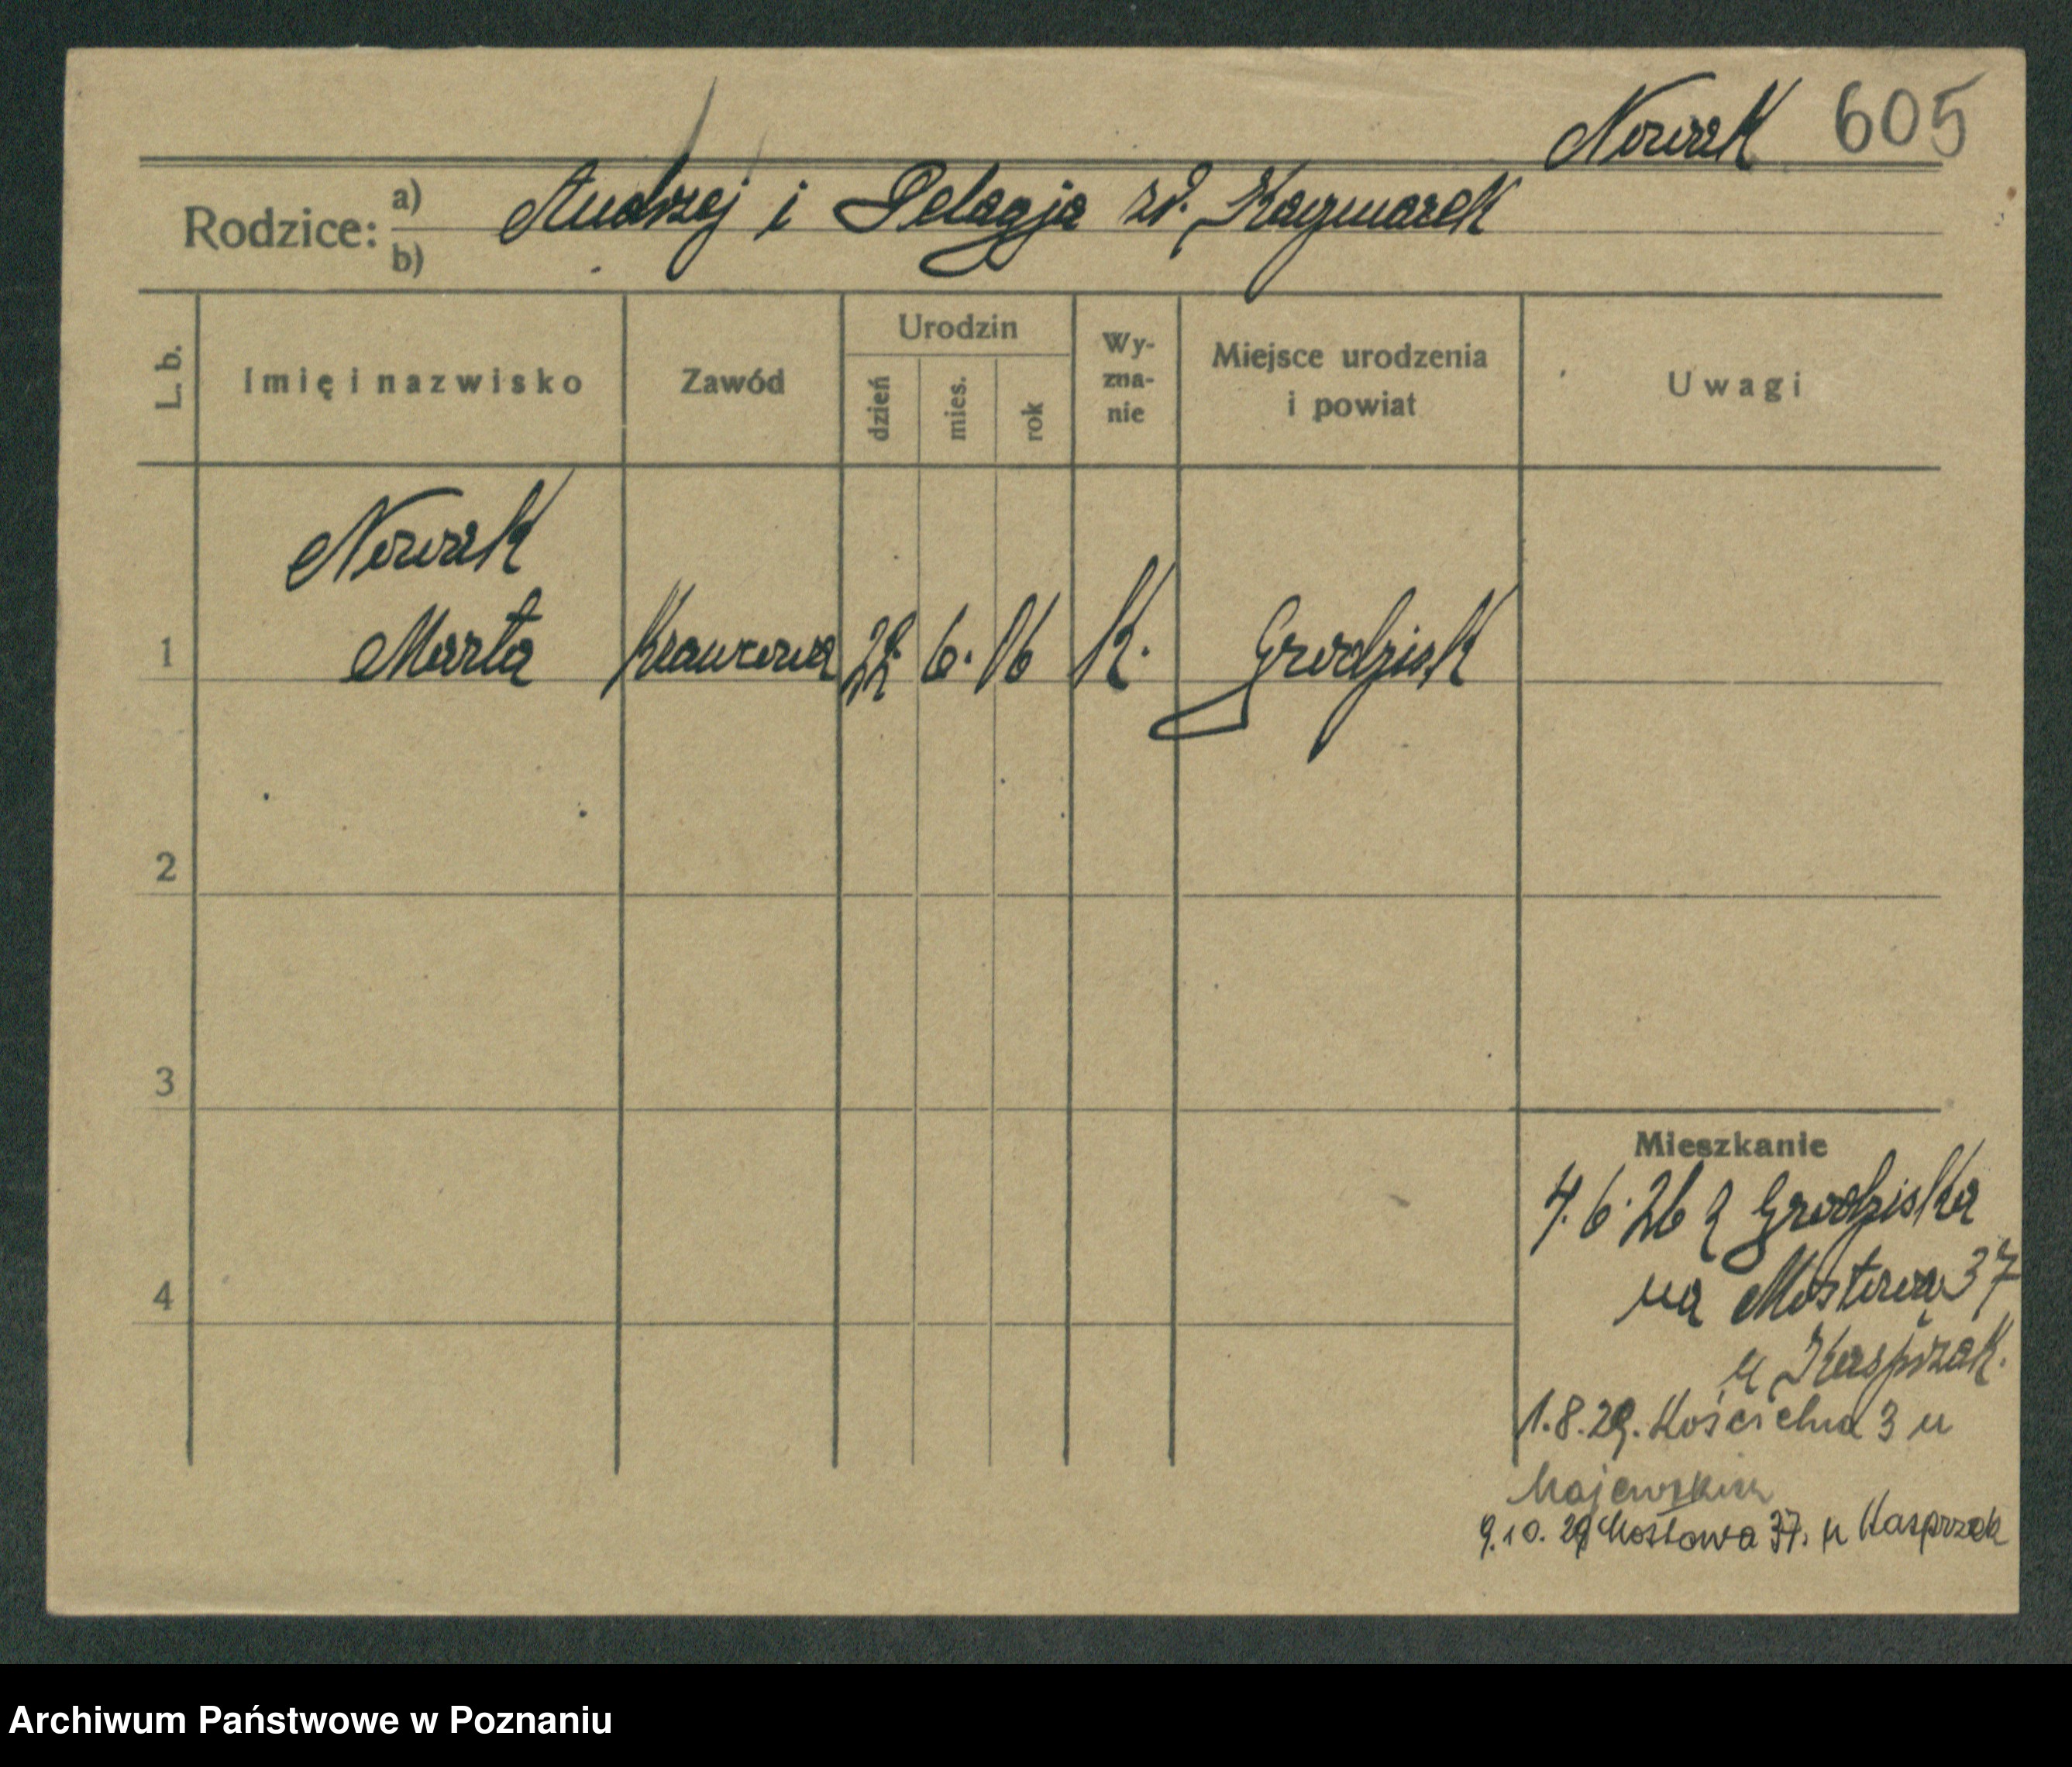 Nowak 605
Rodzice: a) b) Andrzej i Pelagja zd. Kaczmarek
L. b.
Imię i nazwisko
Zawód
Urodzin
dzień
mies.
rok
Wy-
zna-
nie
Miejsce urodzenia
i powiat
Uwagi
Nowak
1 Marta Krawcowa 22. 6. 06 K. Grodzisk
2
3
4
Mieszkanie
7. 6. 26 z Grodziska
na Mostową 37
u Kasprzak.
1.8.29. Kościelna 3 u
Majewskich
9.10.29 Mostowa 37. u Kasprzak
Archiwum Państwowe w Poznaniu